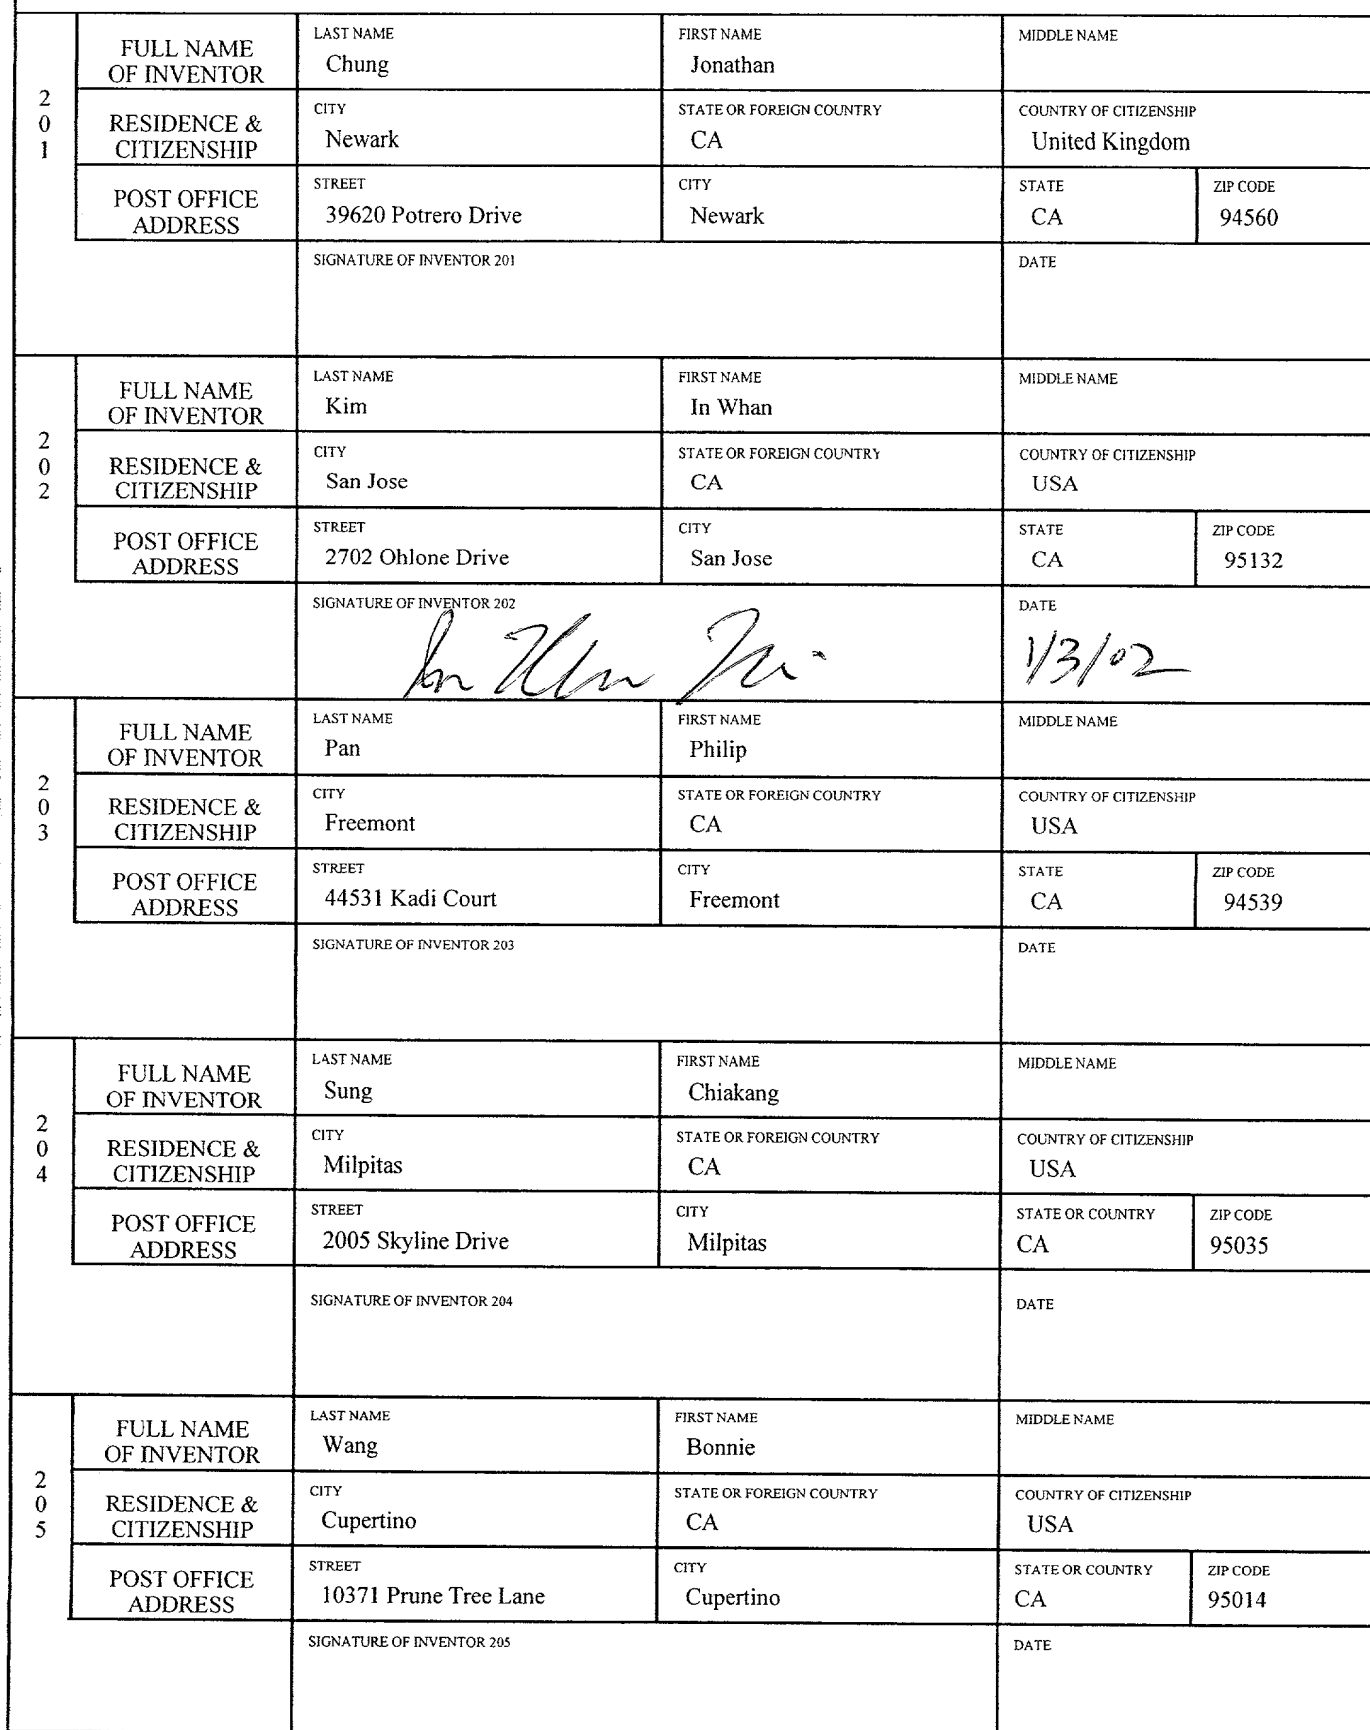 201
FULL NAME OF INVENTOR
LAST NAME
Chung
FIRST NAME
Jonathan
MIDDLE NAME
RESIDENCE & CITIZENSHIP
CITY
Newark
STATE OR FOREIGN COUNTRY
CA
COUNTRY OF CITIZENSHIP
United Kingdom
POST OFFICE ADDRESS
STREET
39620 Potrero Drive
CITY
Newark
STATE
CA
ZIP CODE
94560
SIGNATURE OF INVENTOR 201
DATE
202
FULL NAME OF INVENTOR
LAST NAME
Kim
FIRST NAME
In Whan
MIDDLE NAME
RESIDENCE & CITIZENSHIP
CITY
San Jose
STATE OR FOREIGN COUNTRY
CA
COUNTRY OF CITIZENSHIP
USA
POST OFFICE ADDRESS
STREET
2702 Ohlone Drive
CITY
San Jose
STATE
CA
ZIP CODE
95132
SIGNATURE OF INVENTOR 202
DATE
1/3/02
203
FULL NAME OF INVENTOR
LAST NAME
Pan
FIRST NAME
Philip
MIDDLE NAME
RESIDENCE & CITIZENSHIP
CITY
Freemont
STATE OR FOREIGN COUNTRY
CA
COUNTRY OF CITIZENSHIP
USA
POST OFFICE ADDRESS
STREET
44531 Kadi Court
CITY
Freemont
STATE
CA
ZIP CODE
94539
SIGNATURE OF INVENTOR 203
DATE
204
FULL NAME OF INVENTOR
LAST NAME
Sung
FIRST NAME
Chiakang
MIDDLE NAME
RESIDENCE & CITIZENSHIP
CITY
Milpitas
STATE OR FOREIGN COUNTRY
CA
COUNTRY OF CITIZENSHIP
USA
POST OFFICE ADDRESS
STREET
2005 Skyline Drive
CITY
Milpitas
STATE OR COUNTRY
CA
ZIP CODE
95035
SIGNATURE OF INVENTOR 204
DATE
205
FULL NAME OF INVENTOR
LAST NAME
Wang
FIRST NAME
Bonnie
MIDDLE NAME
RESIDENCE & CITIZENSHIP
CITY
Cupertino
STATE OR FOREIGN COUNTRY
CA
COUNTRY OF CITIZENSHIP
USA
POST OFFICE ADDRESS
STREET
10371 Prune Tree Lane
CITY
Cupertino
STATE OR COUNTRY
CA
ZIP CODE
95014
SIGNATURE OF INVENTOR 205
DATE